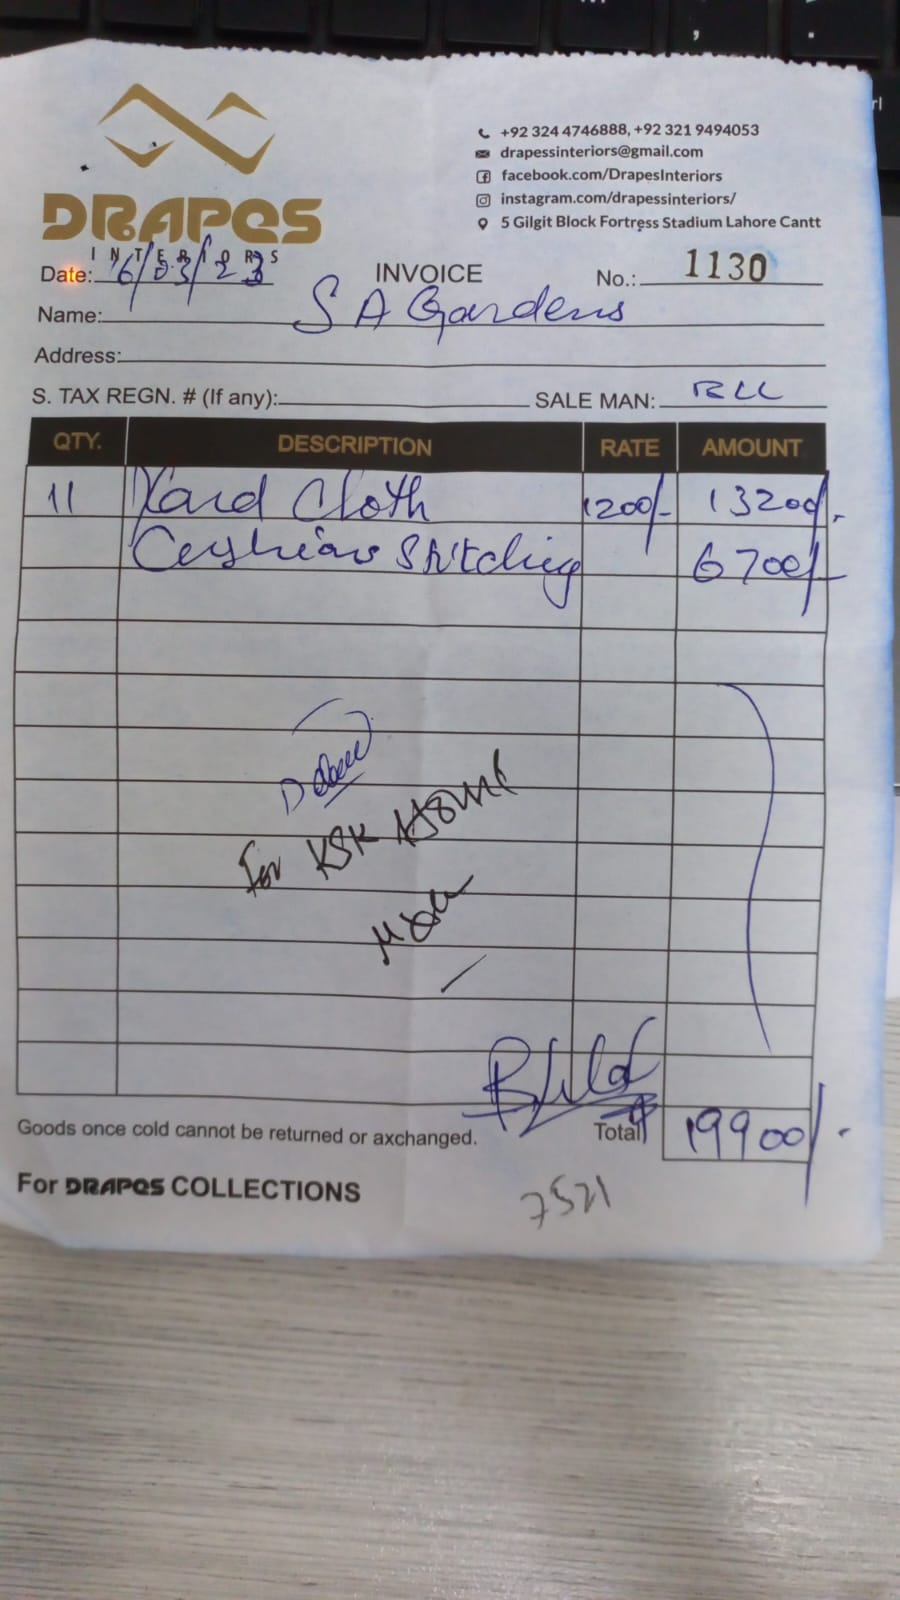 +92 324 4746888, +92 321 9494053
drapessinteriors@gmail.com
facebook.com/DrapesInteriors
instagram.com/drapessinteriors/
5 Gilgit Block Fortress Stadium Lahore Cantt
DRAPES
INTERIORS
Date: 16/03/23 INVOICE No.: 1130
Name: S A Gardens
Address:
S. TAX REGN. # (If any): SALE MAN:
QTY. DESCRIPTION RATE AMOUNT
11 Yard Cloth 1200/- 13200/-
Cushions Stitching 6700/-
For KSK Home
Goods once cold cannot be returned or axchanged. Total 19900/-
For DRAPES COLLECTIONS
7521